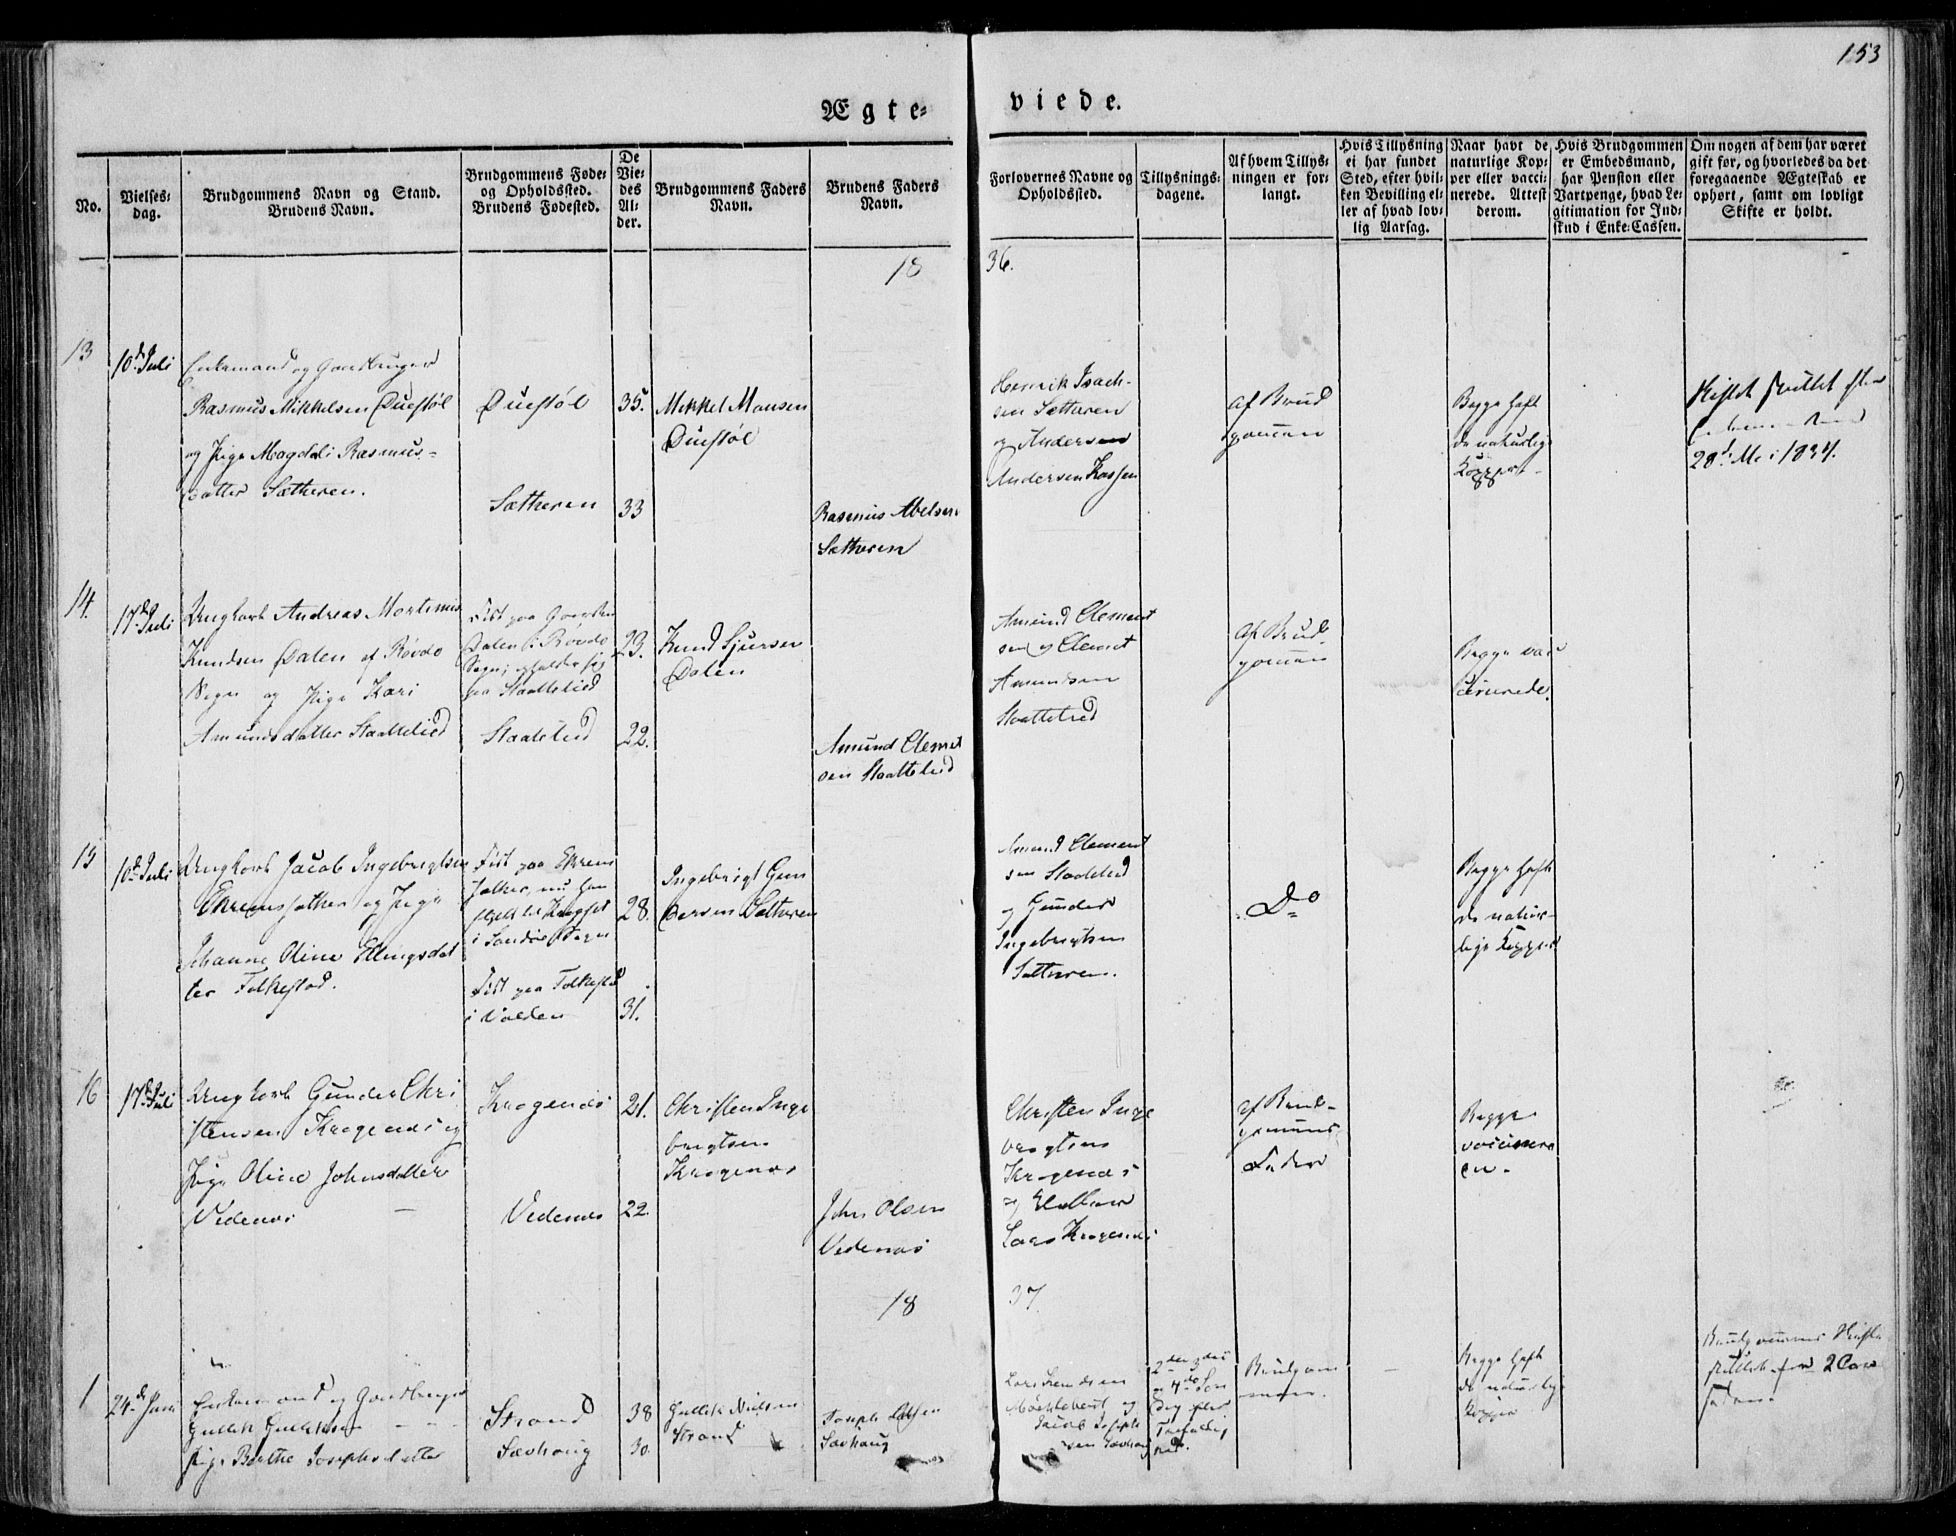 153
Ægte-
viede.
No.
Vielses-
dag.
Brudgommens Navn og Stand.
Brudens Navn.
Brudgommens Føde-
og Opholdssted.
Brudens Fødested.
De
Vie-
des
Al-
der.
Brudgommens Faders
Navn.
Brudens Faders
Navn.
Forlovernes Navne og
Opholdssted.
Tillysnings-
dagene.
Af hvem Tillys-
ningen er for-
langt.
Hvis Tillysning
ei har fundet
Sted, efter hvil-
ken Bevilling el-
ler af hvad lov-
lig Aarsag.
Naar havt de
naturlige Kop-
per eller vacci-
nerede. Attest
derom.
Hvis Brudgommen
er Embedsmand,
har Pension eller
Vartpenge, hvad Le-
gitimation for Ind-
skud i Enke-Cassen.
Om nogen af dem har været
gift før, og hvorledes da det
foregaaende Ægteskab er
ophørt, samt om lovligt
Skifte er holdt.
18
36.
13
10d Juli
Enkemand og Gaardbruger
Rasmus Mikkelsen Duestøl
og Pige Magdeli Rasmus-
datter Sætheren.
Duestøl
Sætheren
35.
33
Mikkel Monsen
Duestøl
Rasmus Abelsen
Sætheren
Henrik Isach-
sen Sætteren
og Andersen
Andersen
af Brud
gommen
Begge haft
de naturlige
Kopper
Skiftet
28d Mai 1834.
14.
17d Juli
Ungkarl Andreas Martinus
Knudsen Dalen af Røvde
Sogn og Pige Kari
Amundsdatter Staattelied
Født paa Gaarden
Dalen i Røvde
Sogn, opholder sig
paa Staattelied
Staattelied
23.
22.
Knud Sjursen
Dalen
Amund Clemet
sen Staattelied
Amund Clement
sen og Clemet
Amundsen
Staattelied
af Brud
gommen
Begge vac
cinerede.
15
10d Juli
Ungkarl Jacob Ingebrigtsen
Ekremssæther og Pige
Johanne Oline Ellingsdat
ter Folkestad.
Født paa Ekrem
sæther, nu hen
i Sandøe Sogn
Født paa Folkestad
i Volden
28.
31.
Ingebrigt Gun
dersen Sætheren
Amund Clement
sen Staattelied
og Gunder
Ingebrigtsen
Sætheren.
Do
Begge haft
de natur-
lige Kopper
16
17d Juli
Ungkarl Gunder Chri
stensen Kragenæs og
Pige Oline Johnsdatter
Vedenæs
Kragenæs
Vedenæs
21.
22.
Christen Inge
brigtsen
Kragenæs
John Olsen
Vedenæs
Christen Inge
brigtsen
Kragenæs
og
Lars Kragenæs
af Brud-
gommens
Fader
Begge
vaccinere
18
37.
1
24d Juni
Enkemand og Gaardbruger
Gullik Gulliksen
Pige Berthe Josephsdatter
Strand
Sævhoug
38
30.
Gullik Nielsen
Strand
Joseph Olsen
Sævhoug
Lars
og
Jacob Joseph
sen Sævhoug
2den 3die
og 4de Søn
dag efter
Trefoldig
hed.
Brudgom
men.
Begge haft
de naturlige
Kopper
Brudgommens